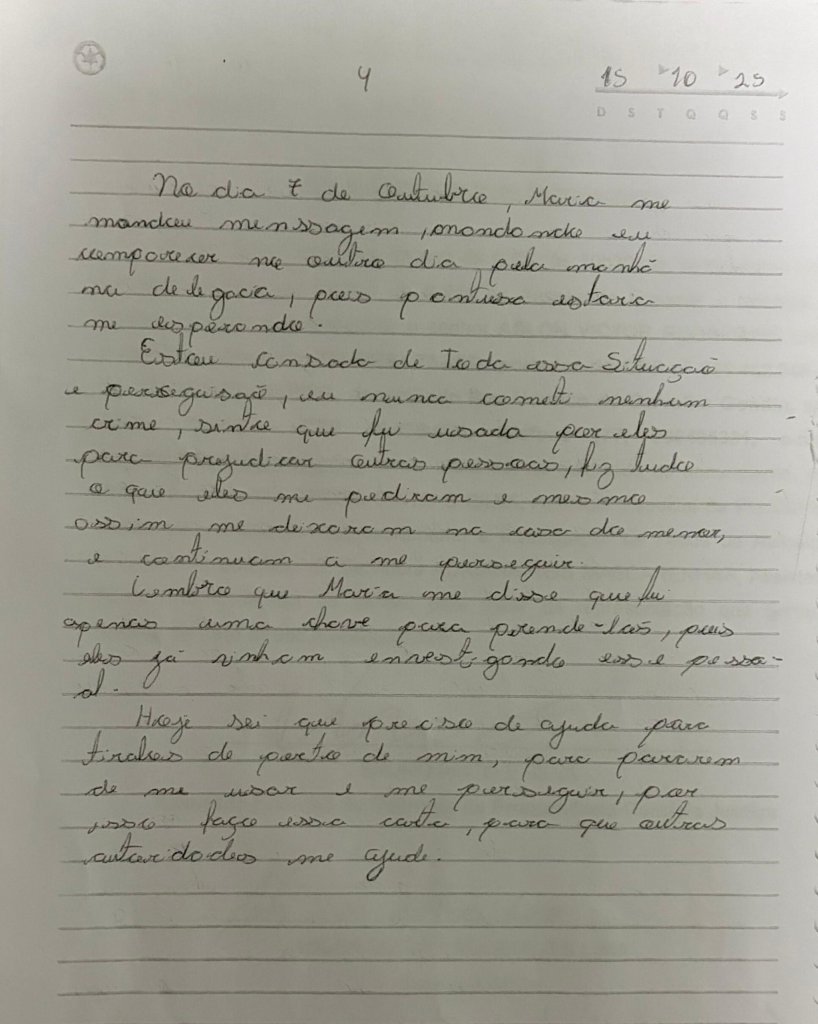 4
15 10 25
D S T Q Q S S
No dia 7 de outubro, Maria me
mandou menssagem, mandando eu
comparecer no outro dia pela manhã
na delegacia, pois estaria
me esperando.
Estou cansada de toda essa situação
e persseguisão, eu nunca cometi nenhum
crime, sinto que fui usada por eles
para prejudicar outras pessoas, fiz tudo
o que eles me pediram e mesmo
assim me deixaram na casa do menor,
e continuam a me perseguir.
Lembro que Maria me disse que fui
apenas uma chave para prende-las, pois
eles já vinham envestigando esse pesso-
al.
Hoje sei que preciso de ajuda para
tiralos de perto de mim, para pararem
de me usar e me perseguir, por
isso faço essa carta, para que outras
autoridades me ajude.